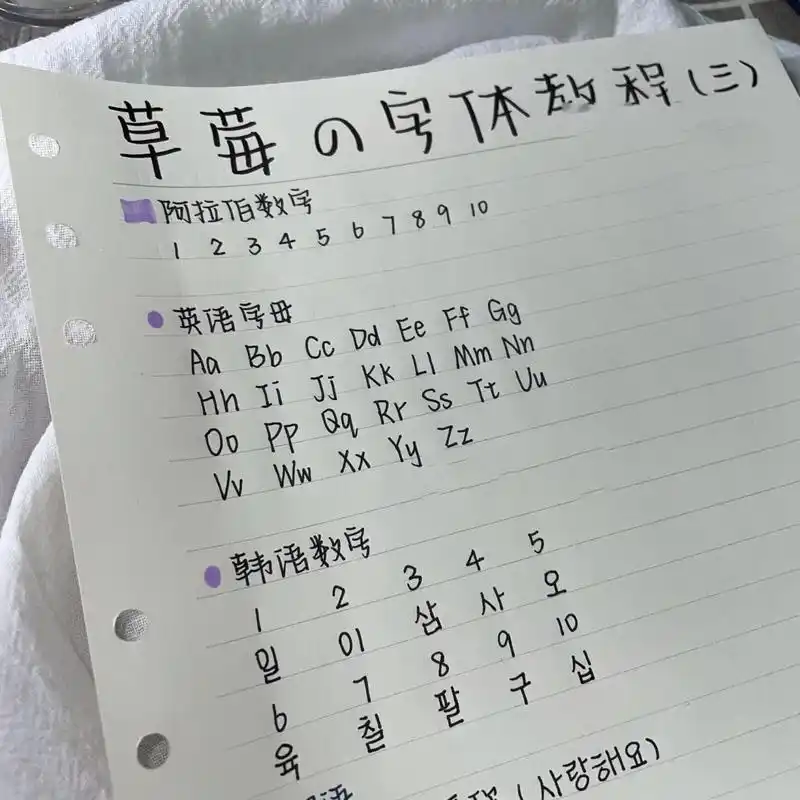 草莓の字体教程(三)
阿拉伯数字
1 2 3 4 5 6 7 8 9 10
英语字母
Aa Bb Cc Dd Ee Ff Gg
Hh Ii Jj Kk Ll Mm Nn
Oo Pp Qq Rr Ss Tt Uu
Vv Ww Xx Yy Zz
韩语数字
1 2 3 4 5
일 이 삼 사 오
6 7 8 9 10
육 칠 팔 구 십
(사랑해요)